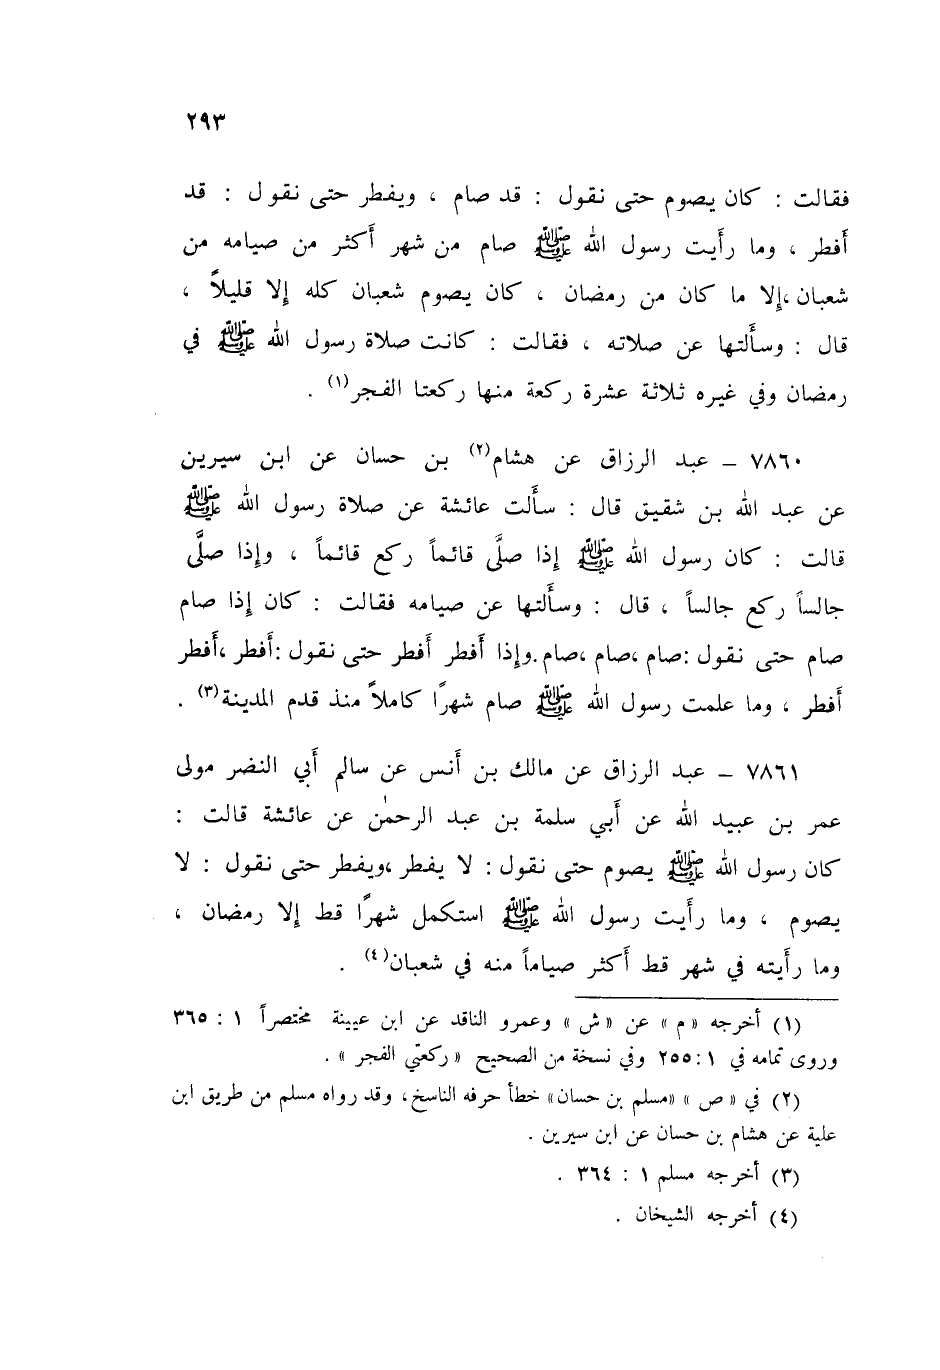 ٢٩٣
فقالت : كان يصوم حتى نقول : قد صام ، ويفطر حتى نقول : قد
أَفطر ، وما رأَيت رسول الله ﷺ صام من شهر أَكثر من صيامه من
شعبان ،إلا ما كان من رمضان ، كان يصوم شعبان كله إلا قليلاً ،
قال : وسأَلتها عن صلاته ، فقالت : كانت صلاة رسول الله ﷺ في
رمضان وفي غيره ثلاثة عشرة ركعة منها ركعتا الفجر(١) .
٧٨٦٠ – عبد الرزاق عن هشام(٢) بن حسان عن ابن سيرين
عن عبد الله بن شقيق قال : سأَلت عائشة عن صلاة رسول الله ﷺ
قالت : كان رسول الله ﷺ إذا صلَّى قائماً ركع قائماً ، وإذا صلَّى
جالساً ركع جالساً ، قال : وسأَلتها عن صيامه فقالت : كان إذا صام
صام حتى نقول :صام ،صام ،صام.وإذا أَفطر أَفطر حتى نقول :أَفطر ،أَفطر
أَفطر ، وما علمت رسول الله ﷺ صام شهرًا كاملاً منذ قدم المدينة(٣) .
٧٨٦١ – عبد الرزاق عن مالك بن أَنس عن سالم أَبي النضر مولى
عمر بن عبيد الله عن أَبي سلمة بن عبد الرحمٰن عن عائشة قالت :
كان رسول الله ﷺ يصوم حتى نقول : لا يفطر ،ويفطر حتى نقول : لا
يصوم ، وما رأَيت رسول الله ﷺ استكمل شهرًا قط إلا رمضان ،
وما رأَيته في شهر قط أَكثر صياماً منه في شعبان(٤) .
(١) أخرجه «م» عن «ش» وعمرو الناقد عن ابن عيينة مختصراً ١ : ٣٦٥
وروى تمامه في ١ :٢٥٥ وفي نسخة من الصحيح « ركعتي الفجر » .
(٢) في « ص » «مسلم بن حسان» خطأ حرفه الناسخ، وقد رواه مسلم من طريق ابن
علية عن هشام بن حسان عن ابن سيرين .
(٣) أخرجه مسلم ١ : ٣٦٤ .
(٤) أخرجه الشيخان .